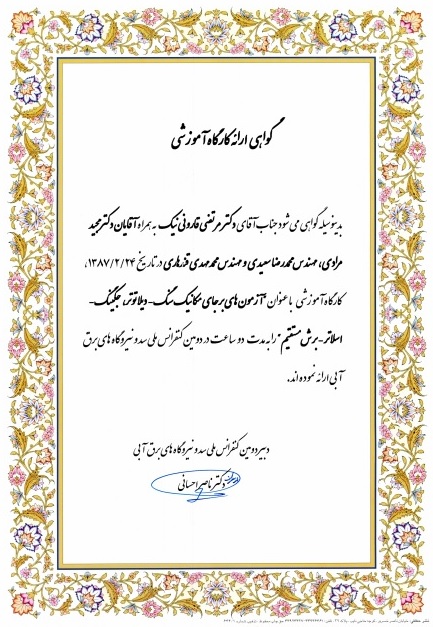 گواهی ارائه کارگاه آموزشی
بدینوسیله گواهی می شود جناب آقای دکتر مرتضی قارونی نیک به همراه آقایان دکتر مجید
مرادی، مهندس محمدرضا سعیدی و مهندس محمد مهدی قندهاری در تاریخ ۱۳۸۷/۲/۲۴،
کارگاه آموزشی با عنوان "آزمون های برجای مکانیک سنگ - دیلاتومتر، جکینگ -
اسلاتر - برش مستقیم" را به مدت دو ساعت در دومین کنفرانس ملی سد و نیروگاه های برق
آبی ارائه نموده اند.
دبیر دومین کنفرانس ملی سد و نیروگاه های برق آبی
دکتر ناصر احسانی